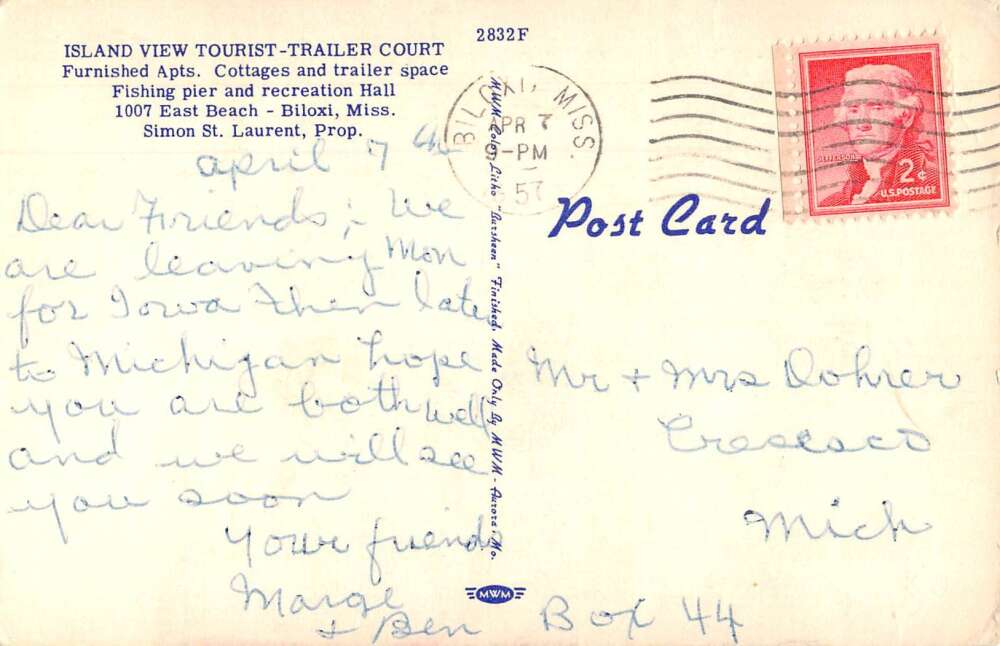 ISLAND VIEW TOURIST-TRAILER COURT
Furnished Apts. Cottages and trailer space
Fishing pier and recreation Hall
1007 East Beach - Biloxi, Miss.
Simon St. Laurent, Prop.
2832F
BILOXI, MISS.
APR 7
9-PM
57
JEFFERSON
2¢
U.S. POSTAGE
april 7th
Dear Friends; We
are leaving Mon
for Iowa then later
to Michigan hope
you are both well
and we will see
you soon
Your friends
Marge
+ Ben
MWM Color Litho "Bursheen" Finished. Made Only By MWM - Aurora Mo.
MWM
Post Card
Mr + Mrs Dohrer
Mich
Box 44